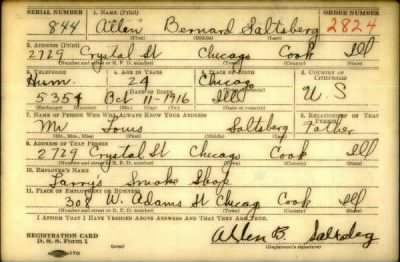 SERIAL NUMBER 1. NAME (Print) ORDER NUMBER
844 Allen Bernard Saltsberg 2824
(First) (Middle) (Last)
2. ADDRESS (Print)
2729 Crystal St Chicago Cook Ill
(Number and street or R. F. D. number) (Town) (County) (State)
3. TELEPHONE 4. AGE IN YEARS 5. PLACE OF BIRTH 6. COUNTRY OF CITIZENSHIP
Hum. 24 Chicago
5354 Oct 11-1916 Ill U. S
7. NAME OF PERSON WHO WILL ALWAYS KNOW YOUR ADDRESS 8. RELATIONSHIP OF THAT PERSON
Mr Louis Saltsberg Father
(Mr., Mrs., Miss) (First) (Middle) (Last)
9. ADDRESS OF THAT PERSON
2729 Crystal St Chicago Cook Ill
(Number and street or R. F. D. number) (Town) (County) (State)
10. EMPLOYER'S NAME
Larrys Smoke Shop
11. PLACE OF EMPLOYMENT OR BUSINESS
308 W. Adams St Chicag Cook Ill
(Number and street or R. F. D. number) (Town) (County) (State)
I AFFIRM THAT I HAVE VERIFIED ABOVE ANSWERS AND THAT THEY ARE TRUE.
REGISTRATION CARD
D. S. S. Form 1 Allen B. Saltsberg
(over) (Registrant's signature)